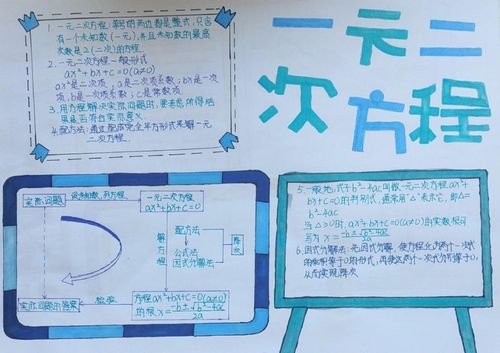 一元二
次方程
1.一元二次方程:等号的两边都是整式,只含
有一个未知数(一元),并且未知数的最高
次数是2(二次)的方程.
2.一元二次方程一般形式
ax²+bx+c=0(a≠0)
ax²是二次项,a是二次项系数;bx是一次
项,b是一次项系数;c是常数项
3.用方程解决实际问题时,要考虑所得结
果是否符合实际意义
4.配方法:通过配成完全平方形式来解一元
二次方程.
实际问题
设未知数,列方程
一元二次方程
ax²+bx+c=0
解方程
配方法
公式法
因式分解法
降次
实际问题的答案
检验
方程ax²+bx+c=0(a≠0)
的根x=-b±√b²-4ac/2a
5.一般地,式子b²-4ac叫做一元二次方程ax²+
bx+c=0的判别式,通常用"△"表示它,即△=
b²-4ac
当△≥0时,ax²+bx+c=0(a≠0)的实数根可
写为x=-b±√b²-4ac/2a
6.因式分解法:先因式分解,使方程化为两个一次式
的乘积等于0的形式,再使这两个一次式分别等于0,
从而实现降次